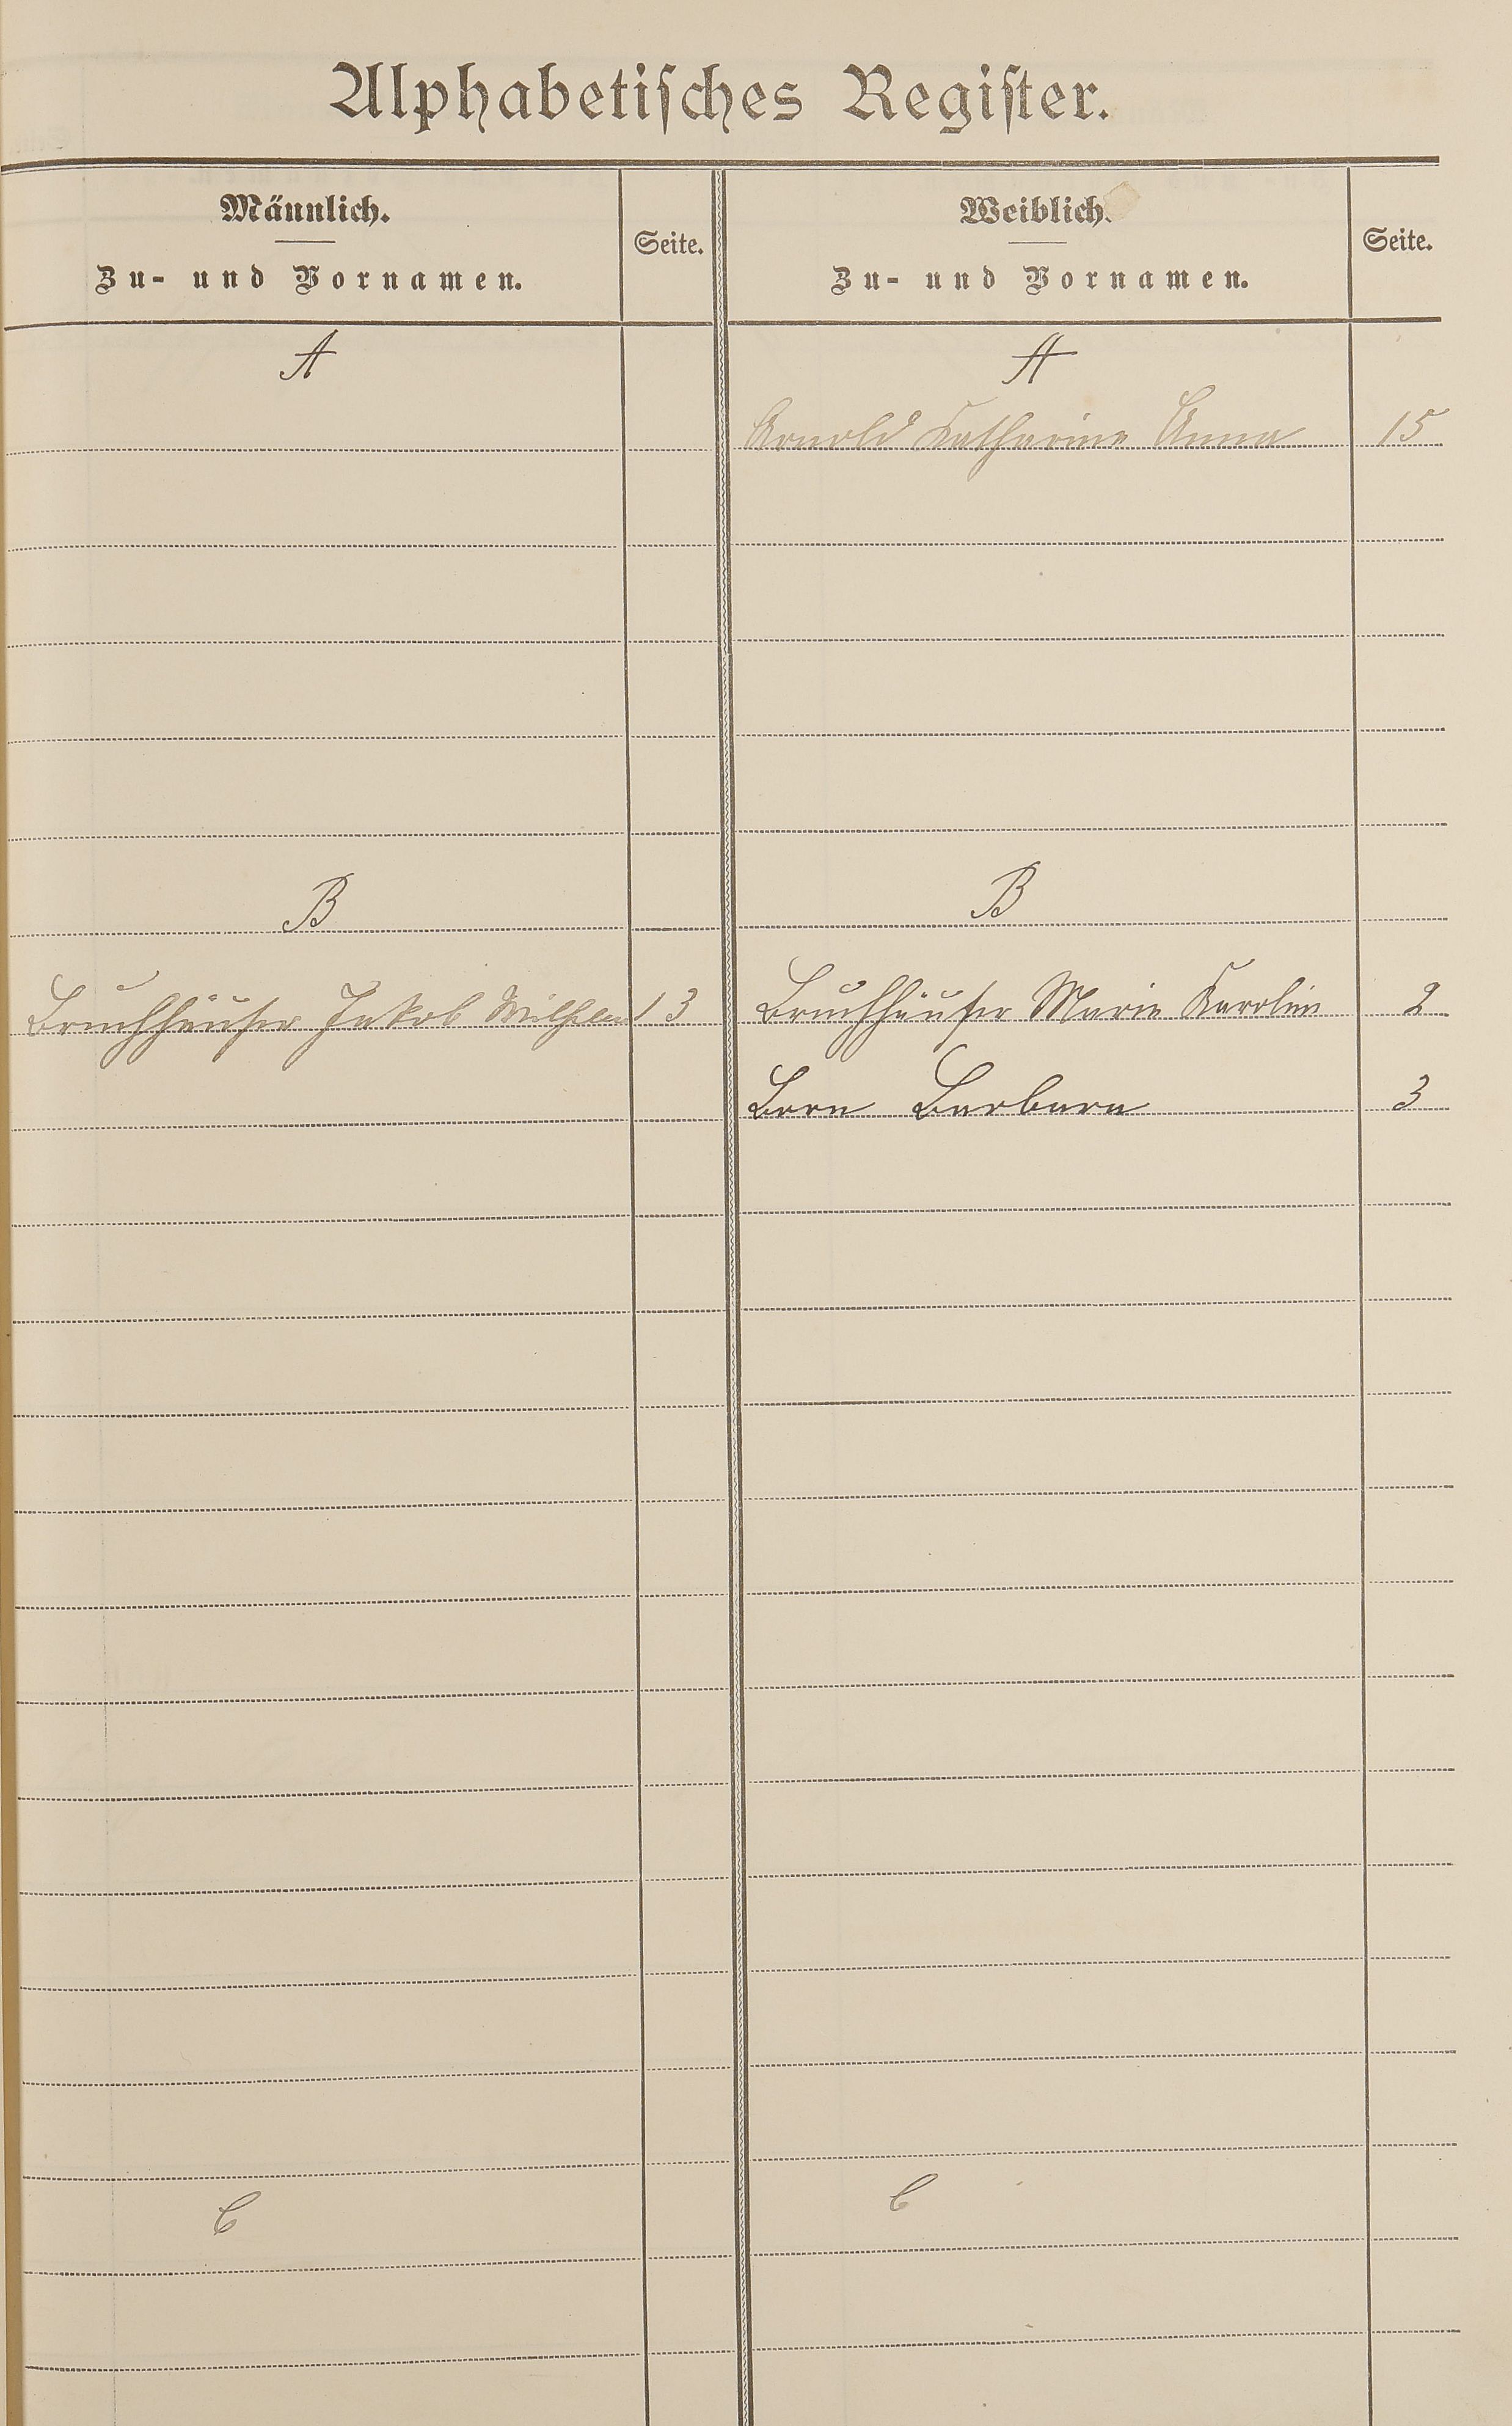 Alphabetisches Register.
Männlich.
Zu- und Vornamen.
Seite.
Weiblich.
Zu- und Vornamen.
Seite.
A
A
Arnold Katharina Anna 15
B
B
Bruchhäuser Jakob Wilhelm 13
Bruchhäuser Marie Karolin 2
Born Barbara 3
C
C